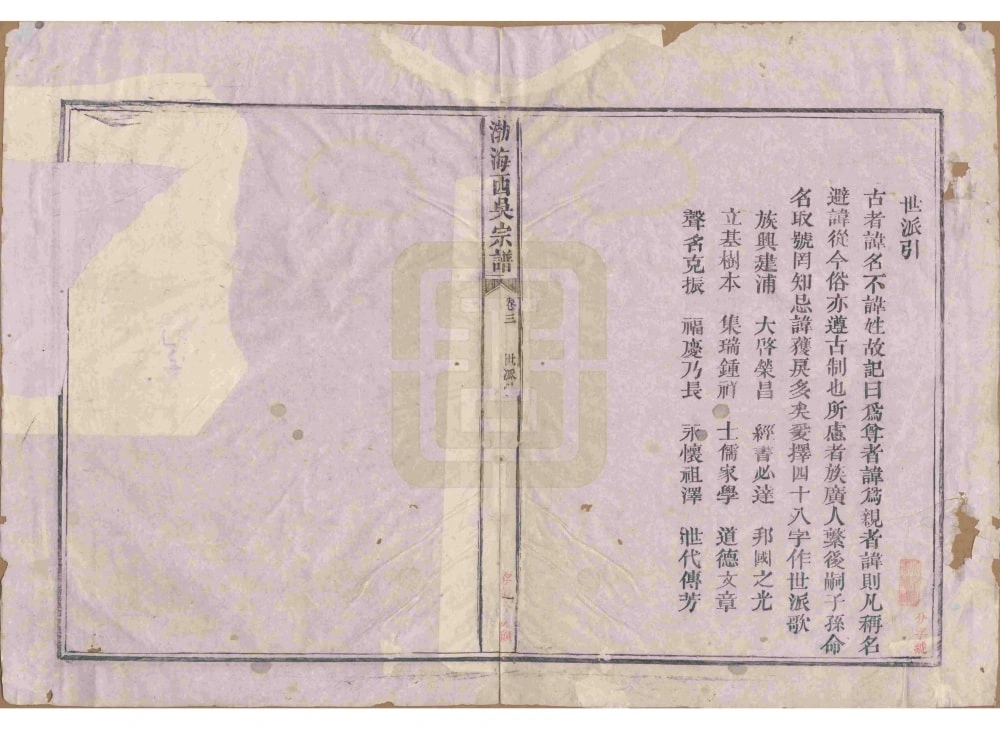 世派引
古者諱名不諱姓故記曰為尊者諱為親者諱則凡稱名
避諱從今俗亦遵古制也所慮者族廣人繁後嗣子孫命
名取號罔知忌諱獲戾多矣爰擇四十八字作世派歌
族興建浦 大啓榮昌 經書必達 邦國之光
立基樹本 集瑞鍾祥 士儒家學 道德文章
聲名克振 福慶乃長 永懷祖澤 世代傳芳
渤海西吳宗譜
卷三 世派引